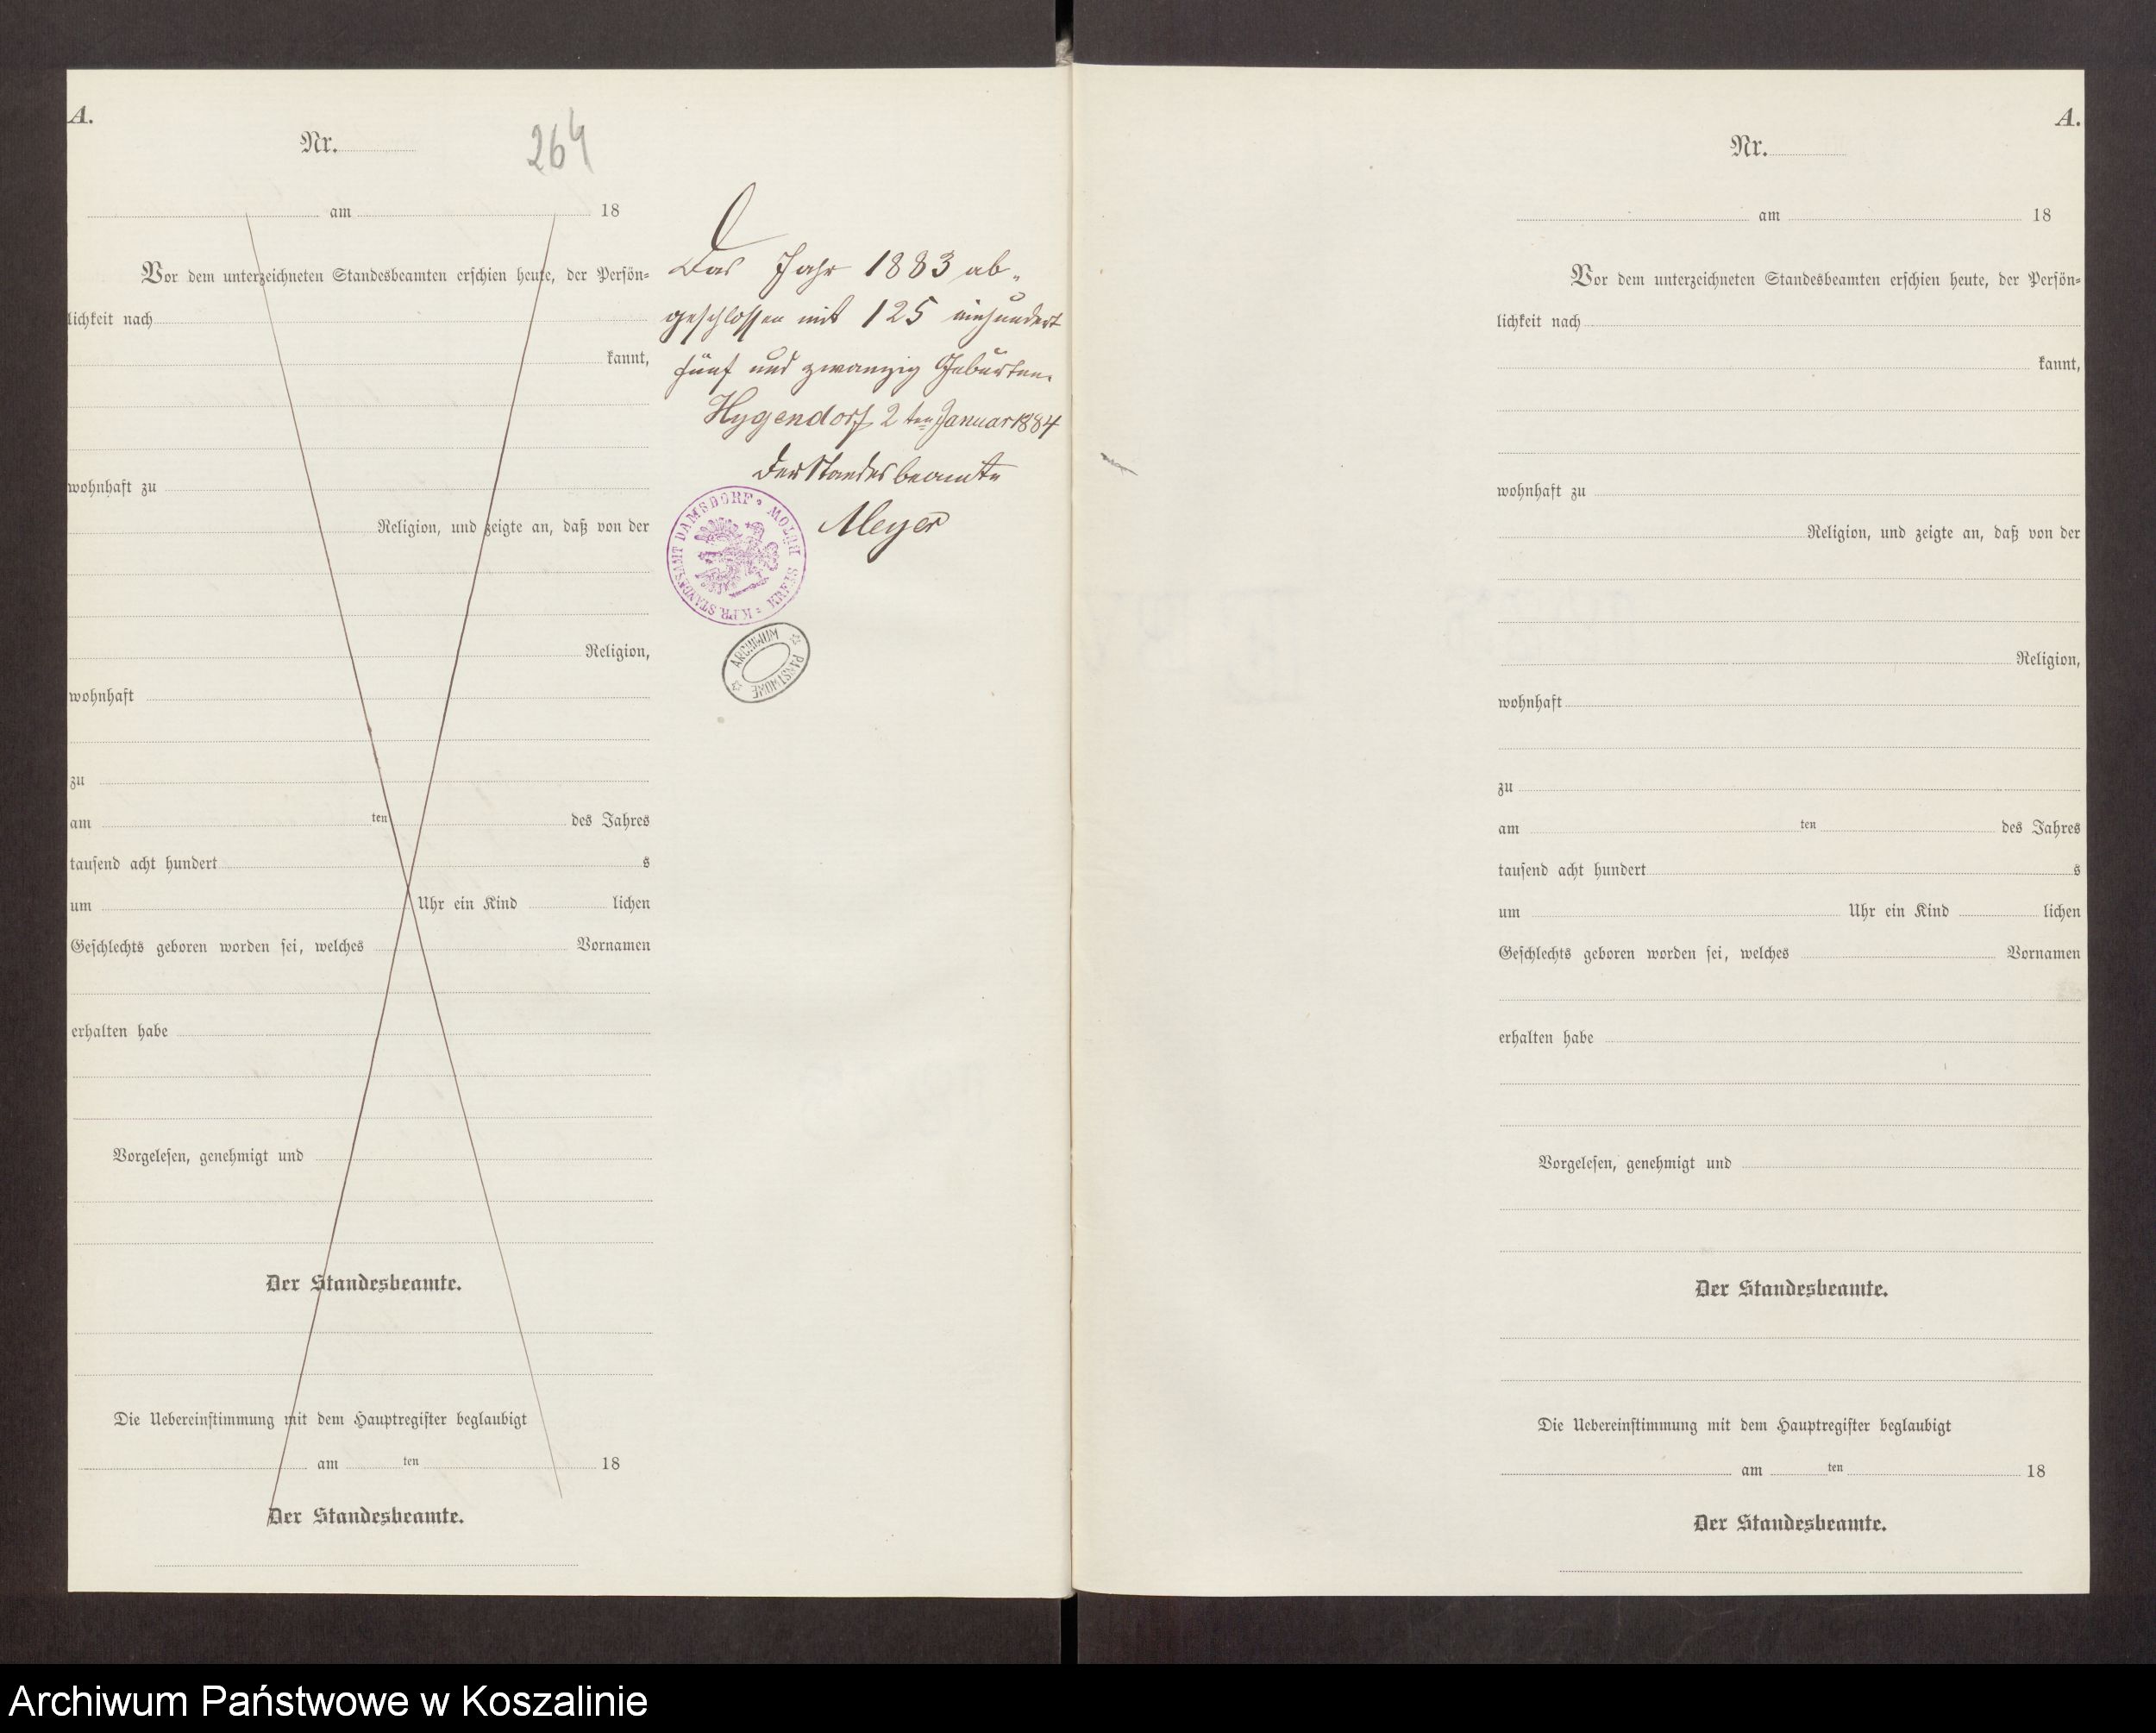 A.
Nr.
264
am 18
Vor dem unterzeichneten Standesbeamten erschien heute, der Persön-
lichkeit nach
kannt,
wohnhaft zu
Religion, und zeigte an, daß von der
Religion,
wohnhaft
zu
am ten des Jahres
tausend acht hundert s
um Uhr ein Kind lichen
Geschlechts geboren worden sei, welches Vornamen
erhalten habe
Vorgelesen, genehmigt und
Der Standesbeamte.
Die Uebereinstimmung mit dem Hauptregister beglaubigt
am ten 18
Der Standesbeamte.
Das Jahr 1883 ab-
geschlossen mit 125 einhundert
fünf und zwanzig Geburten.
Hygendorf 2 ten Januar 1884
Der Standesbeamte
Meyer
K.PR. STANDESAMT DAMSDORF
ARCHIWUM PAŃSTWOWE
A.
Nr.
am 18
Vor dem unterzeichneten Standesbeamten erschien heute, der Persön-
lichkeit nach
kannt,
wohnhaft zu
Religion, und zeigte an, daß von der
Religion,
wohnhaft
zu
am ten des Jahres
tausend acht hundert s
um Uhr ein Kind lichen
Geschlechts geboren worden sei, welches Vornamen
erhalten habe
Vorgelesen, genehmigt und
Der Standesbeamte.
Die Uebereinstimmung mit dem Hauptregister beglaubigt
am ten 18
Der Standesbeamte.
Archiwum Państwowe w Koszalinie